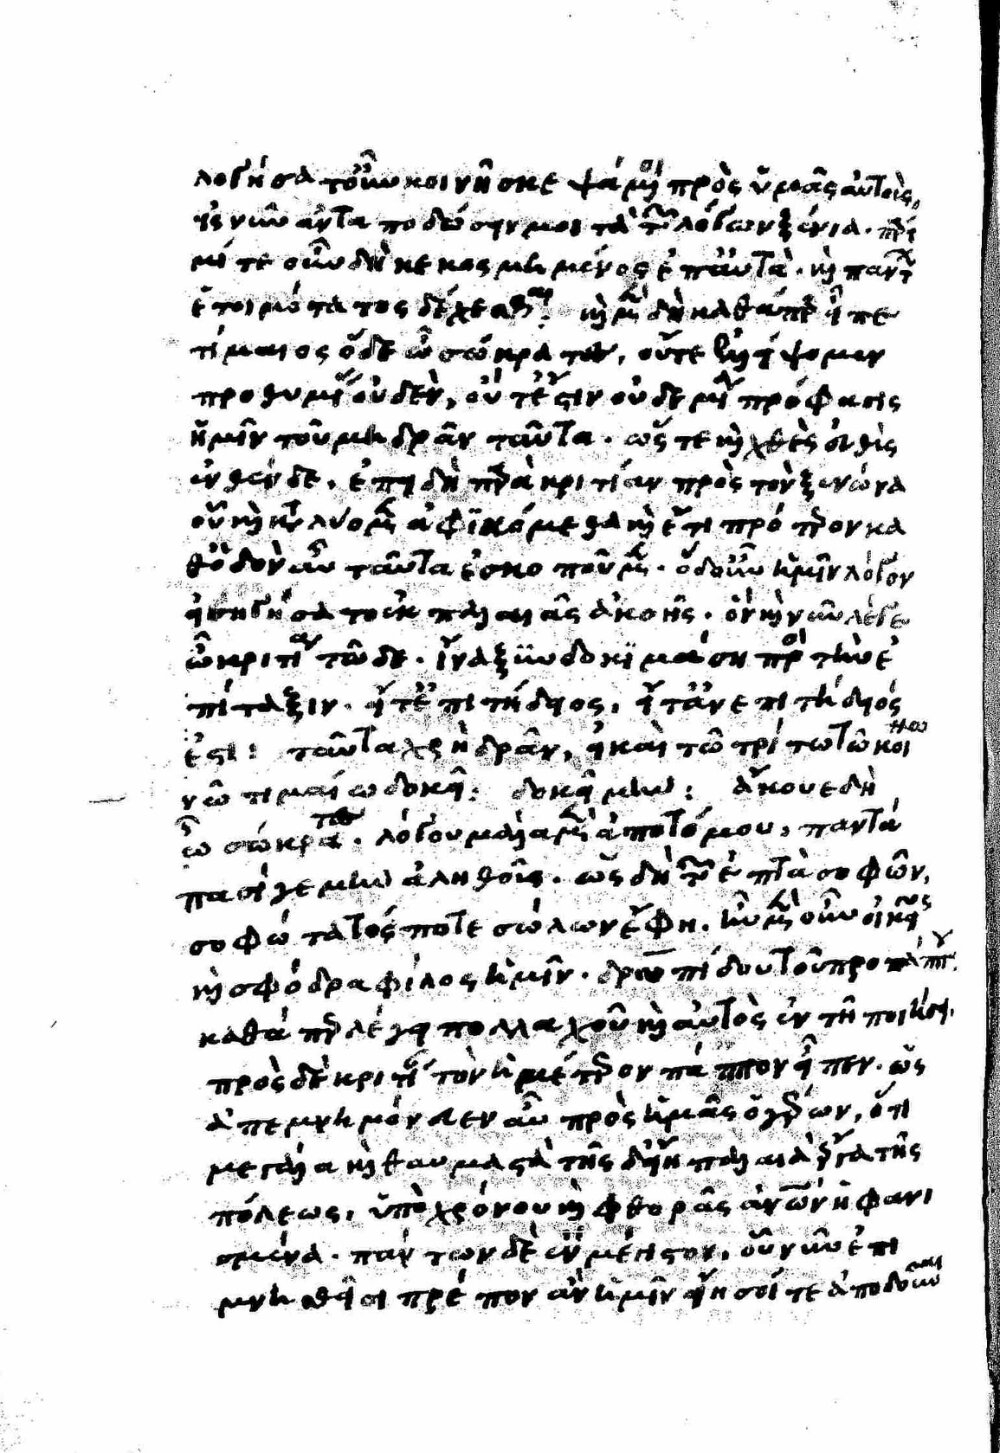 λογήσατε οὖν κοινῆ σκεψάμενοι πρὸς ὑμᾶς αὐτοὺς,
εἰς νῦν ἀνταποδώσειν μοι τὰ τῶν λόγων ξένια. πάρει
μί τε οὖν δὴ κεκοσμημένος ἐπ' αὐτὰ. καὶ πάντων
ἑτοιμότατος δέχεσθαι: καὶ μὲν δὴ καθάπερ εἶπε
τίμαιος ὅδε ὦ σώκρατες, οὔτε ἐλλείψομεν
προθυμίας οὐδὲν, οὔτ' ἔστιν οὐδεμία πρόφασις
ἡμῖν τοῦ μὴ δρᾶν ταῦτα. ὥστε καὶ χθὲς εὐθὺς
ἐνθένδε, ἐπειδὴ παρὰ κριτίαν πρὸς τὸν ξενῶνα
οὗ καὶ καταλύομεν ἀφικόμεθα καὶ ἔτι πρότερον κα
θ' ὁδὸν αὖ ταῦτα ἐσκοποῦμεν. ὁ δ' οὖν ἡμῖν λόγον
εἰσηγήσατο ἐκ παλαιᾶς ἀκοῆς. ὃν καὶ νῦν λέγε
ὦ κριτία τῶδε. ἵνα ξυνδοκιμάση πρὸς τὴν ἐ
πίταξιν. εἴτ' ἐπιτήδειος, εἴτ' ἀνεπιτήδειός
ἐστι: ταῦτα χρὴ δρᾶν, εἰ καὶ τῶ τρίτω τῶ κοι
νωνῶ τιμαίω δοκεῖ: δοκεῖ μὴν: ἄκουε δὴ
ὦ σώκρατες. λόγου μάλα μὲν ἀτόπου, παντά
πασί γε μὴν ἀληθοῦς. ὡς δὴ τῶν ἑπτὰ σοφῶν,
σοφώτατός ποτε σόλων ἔφη. ἦν μὲν οὖν οἰκεῖος
καὶ σφόδρα φίλος ἡμῖν. δρωπίδου τοῦ προπάππου.
καθάπερ λέγει πολλαχοῦ καὶ αὐτὸς ἐν τῆ ποιήσει.
πρὸς δὲ κριτίαν τὸν ἡμέτερον πάππον εἶπεν. ὡς
ἀπεμνημόνευεν αὖ πρὸς ἡμᾶς ὁ γέρων, ὅτι
μεγάλα καὶ θαυμαστὰ τῆσδ' εἴη παλαιὰ ἔργα τῆς
πόλεως, ὑπὸ χρόνου καὶ φθορᾶς ἀνθρώπων ἠφανι
σμένα. πάντων δὲ ἓν μέγιστον, οὗ νῦν ἐπι
μνησθεῖσι πρέπον ἂν ἡμῖν εἴη σοί τε ἀποδοῦναι